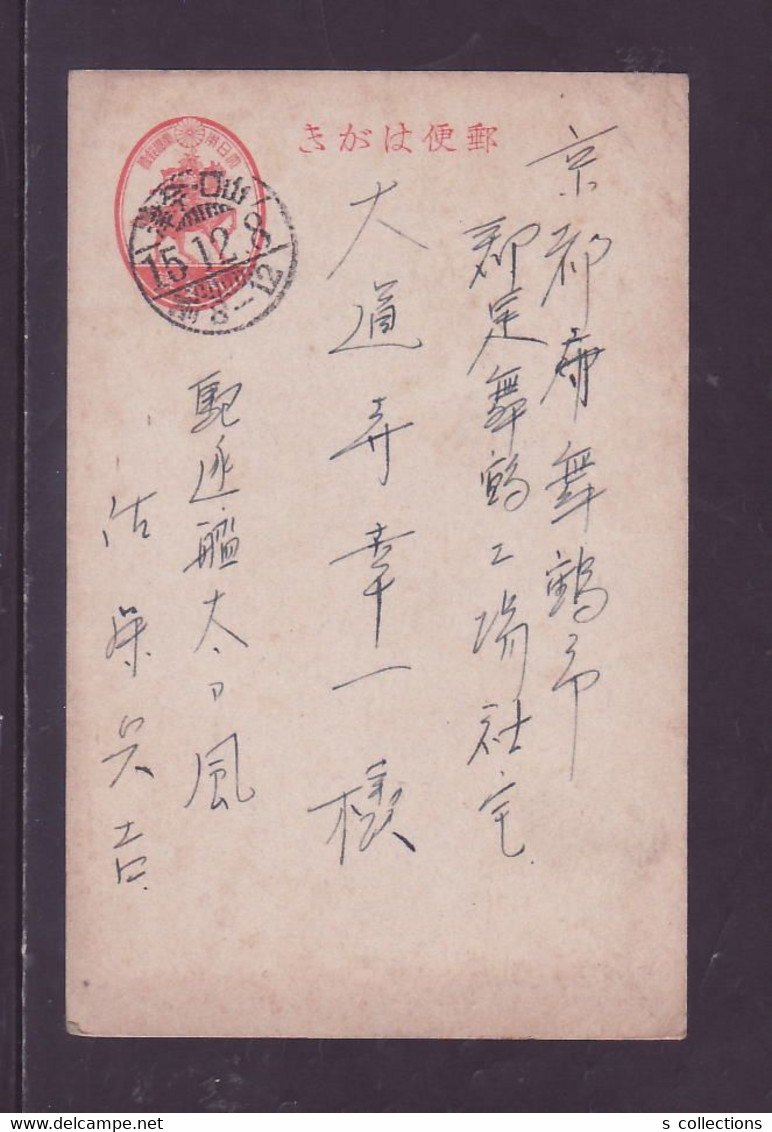 郵便はがき
大日本帝國郵便
山口・室津
15.12.8
后8-12
京都府舞鶴市
郡是舞鶴工場社宅
大道寺幸一様
駆逐艦太刀風
吉
s collections